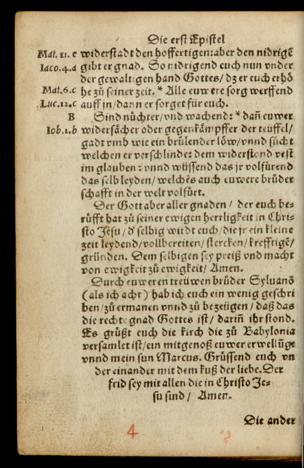 Die erst Epistel
Mat. 11. c widerstadt den hoffertigen: aber den nidrigē
Iaco. 4. a gibt er gnad. So nidrigend euch nun vnder
der gewaltigen hand Gottes/ dz er euch erhö
Mat. 6. c he zů seiner zeit. * Alle euwere sorg werffend
Luc. 12. c auff in/ dann er sorget für euch.
B Sind nüchter/ vnd wachend: * dañ euwer
Iob. 1. b widersächer oder gegenkämpffer der teüffel/
gadt vmb wie ein brülender löw/ vnnd sůcht
welchen er verschlinde: dem widerstond vest
im glauben: vnnd wüssend das jr vollfürend
das selb leyden/ welchēs auch euwere brüder
schafft in der welt volfürt.
Der Gott aber aller gnaden/ der euch be-
rüfft hat zů seiner ewigen herrligkeit in Chri
sto Jesu/ d' selbig wirdt euch/ die jr ein kleine
zeit leydend/ vollbereiten/ stercken/ krefftigē/
gründen. Dem selbigen sey preiß vnd macht
von ewigkeit zů ewigkeit/ Amen.
Durch euweren treüwen brüder Syluanū
(als ich acht) hab ich euch ein wenig geschri
ben/ zů ermanen vnnd zů bezeügen/ daß das
die recht gnad Gottes ist/ dariñ ihr stond.
Es grüßt euch die kirch die zů Babylonia
versamlet ist/ ein mitgenoß euwer erwellūge
vnnd mein sun Marcus. Grüssend euch vn
der einander mit dem kuß der liebe. Der
frid sey mit allen die in Christo Je-
su sind/ Amen.
Die ander
4